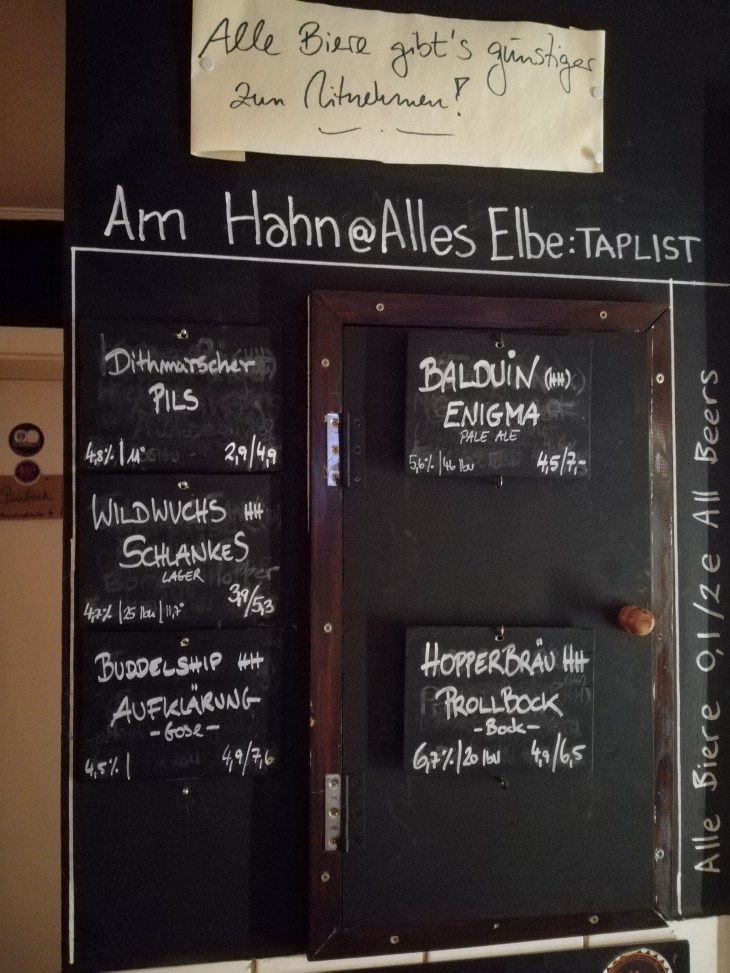 Alle Biere gibt's günstiger
zum Mitnehmen!
Am Hahn@Alles Elbe:TAPLIST
Dithmarscher
PILS
4,8% | 11° 2,9/4,9
WILDWUCHS HH
SCHLANKES
LAGER
4,7% | 25 Ibu | 11,7° 3,9/5,3
BUDDELSHIP HH
AUFKLÄRUNG
-Gose-
4,5% | 4,9/7,6
BALDUIN (HH)
ENIGMA
PALE ALE
5,6% | 46 Ibu 4,5/7,-
HOPPERBRÄU HH
PROLLBOCK
-Bock-
6,7% | 20 Ibu 4,9/6,5
Alle Biere 0,1/2€ All Beers